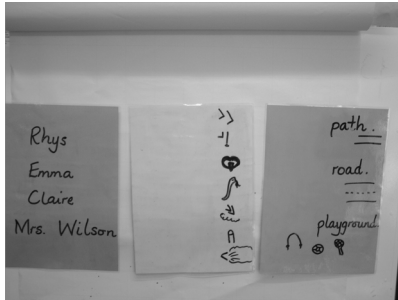 Rhys
Emma
Claire
Mrs. Wilson
path.
road.
playground.